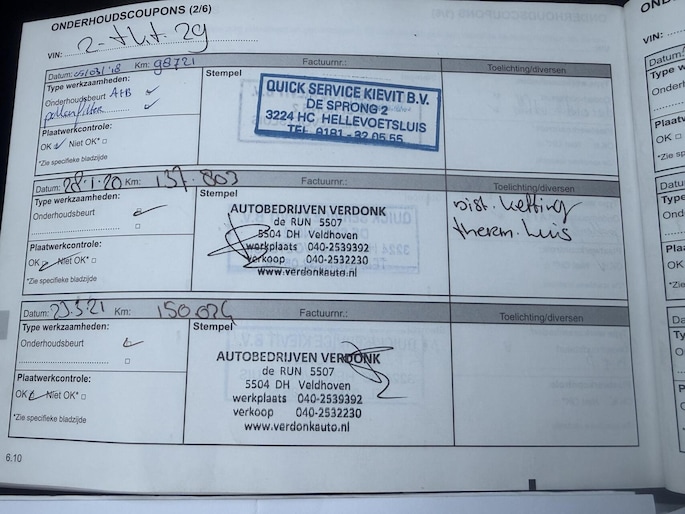 ONDERHOUDSCOUPONS (2/6)
VIN: 2-tht-29
Datum: 05/03/18 Km: 98721 Factuurnr.: Toelichting/diversen
Type werkzaamheden:
Onderhoudsbeurt A+B
pollenfilter
Plaatwerkcontrole:
OK Niet OK*
*Zie specifieke bladzijde
Stempel
QUICK SERVICE KIEVIT B.V.
DE SPRONG 2
3224 HC HELLEVOETSLUIS
TEL. 0181 - 32 05 55
Datum: 28.1.20 Km: 137.803 Factuurnr.: Toelichting/diversen
Type werkzaamheden:
Onderhoudsbeurt
Plaatwerkcontrole:
OK Niet OK*
*Zie specifieke bladzijde
Stempel
AUTOBEDRIJVEN VERDONK
de RUN 5507
5504 DH Veldhoven
werkplaats 040-2539392
verkoop 040-2532230
www.verdonkauto.nl
Dist. ketting
therm. huis
Datum: 23.3.21 Km: 150.024 Factuurnr.: Toelichting/diversen
Type werkzaamheden:
Onderhoudsbeurt
Plaatwerkcontrole:
OK Niet OK*
*Zie specifieke bladzijde
Stempel
AUTOBEDRIJVEN VERDONK
de RUN 5507
5504 DH Veldhoven
werkplaats 040-2539392
verkoop 040-2532230
www.verdonkauto.nl
6.10